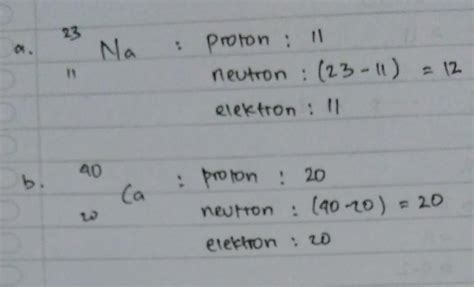 a. ²³₁₁ Na : proton : 11
neutron : (23-11) = 12
elektron : 11
b. ⁴⁰₂₀ Ca : proton : 20
neutron : (40-20) = 20
elektron : 20